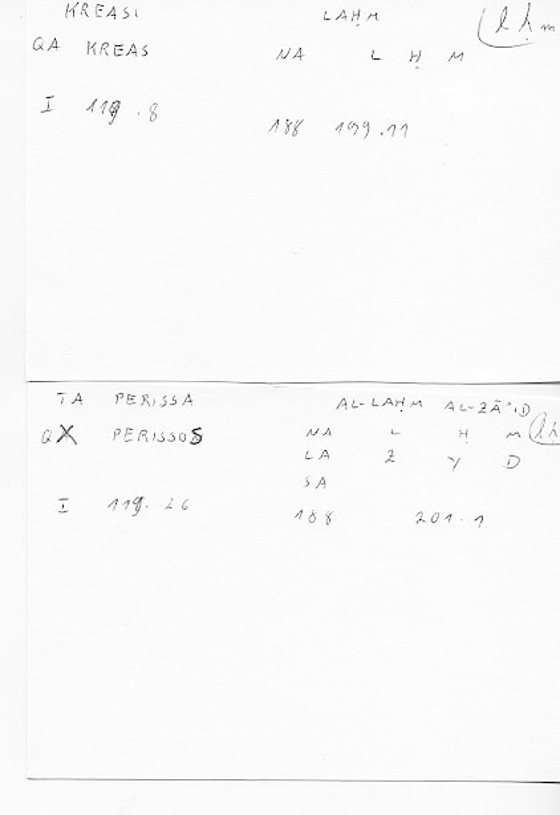 KREASI LAḤM (lḥm
QA KREAS NA L Ḥ M
I 119.8
188 199.11
TA PERISSA AL-LAḤM AL-ZĀʾID
QX PERISSOS NA L Ḥ M (lḥ
LA Z Y D
SA
I 119.26 188 201.1